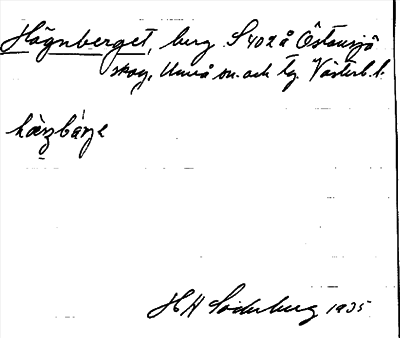 Högnberget, berg S 402 å Östansjö
skog, Umeå sn. och tg. Västerb. l.
H H Söderberg 1935